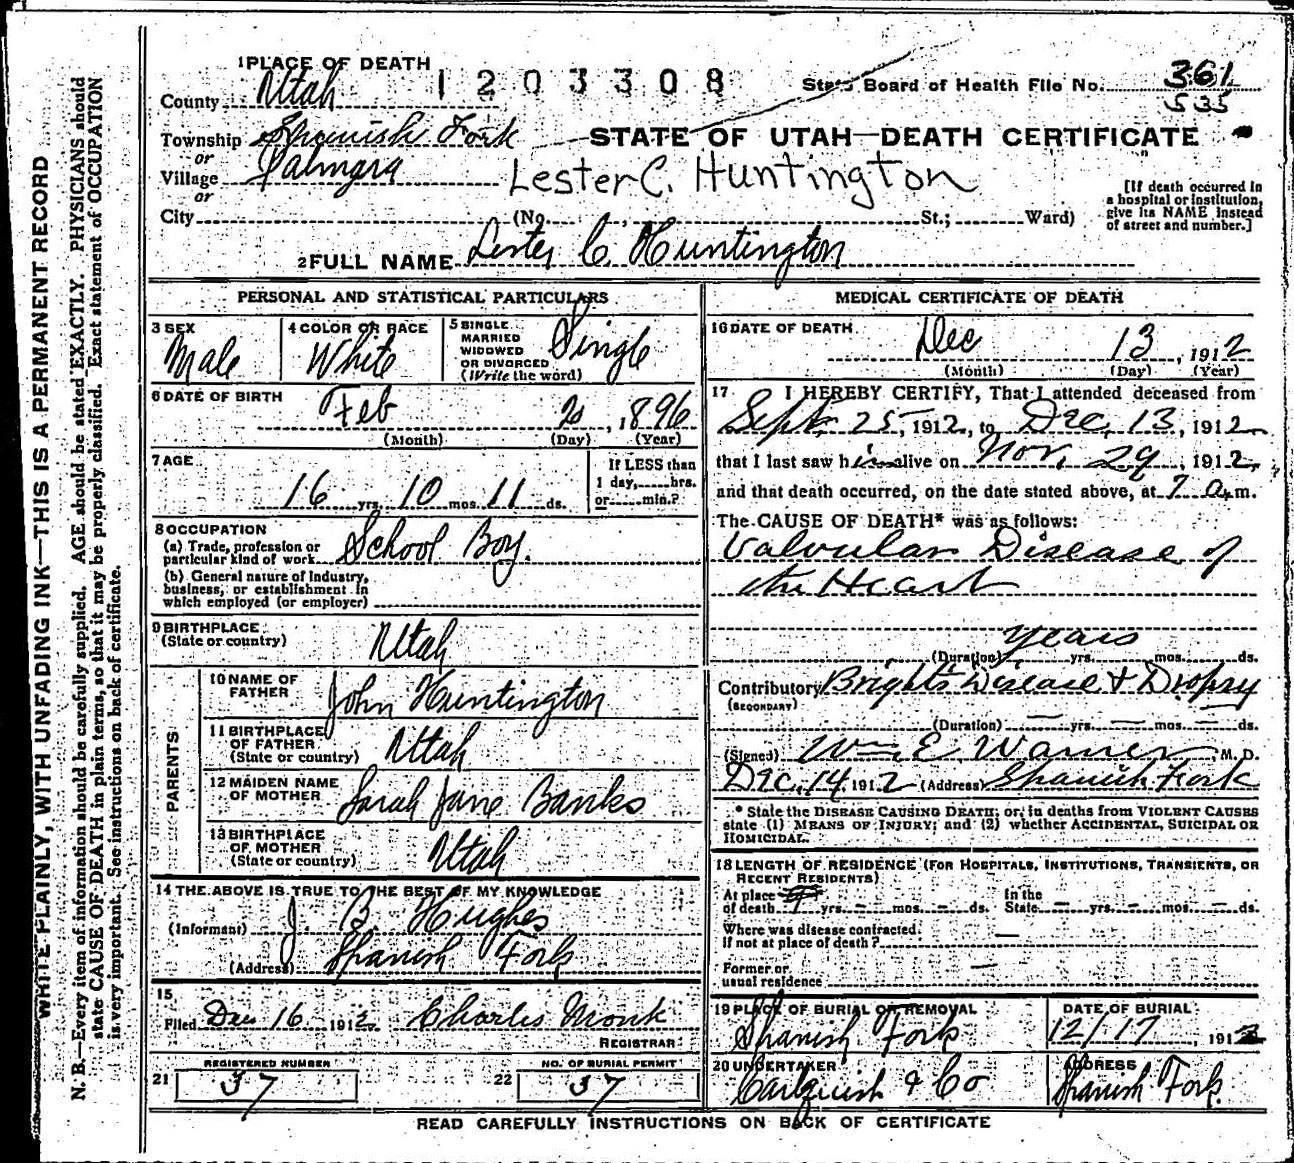 WRITE PLAINLY, WITH UNFADING INK—THIS IS A PERMANENT RECORD
N. B.—Every item of information should be carefully supplied. AGE should be stated EXACTLY. PHYSICIANS should
state CAUSE OF DEATH in plain terms, so that it may be properly classified. Exact statement of OCCUPATION
is very important. See instructions on back of certificate.
1 PLACE OF DEATH
1203308
State Board of Health File No. 361
535
County Utah
Township Spanish Fork
or
Village Palmyra
or
STATE OF UTAH—DEATH CERTIFICATE
Lester C. Huntington
[If death occurred in
a hospital or institution,
give its NAME instead
of street and number.]
City (No. , St.; Ward)
2 FULL NAME Lester C. Huntington
PERSONAL AND STATISTICAL PARTICULARS
3 SEX
Male
4 COLOR OR RACE
White
5 SINGLE
MARRIED
WIDOWED
OR DIVORCED
(Write the word)
Single
6 DATE OF BIRTH
Feb 2, 1896
(Month) (Day) (Year)
7 AGE
16 yrs. 10 mos. 11 ds.
If LESS than
1 day, hrs.
or min.?
8 OCCUPATION
(a) Trade, profession or
particular kind of work School Boy.
(b) General nature of Industry,
business, or establishment in
which employed (or employer)
9 BIRTHPLACE
(State or country) Utah
PARENTS
10 NAME OF
FATHER John Huntington
11 BIRTHPLACE
OF FATHER
(State or country) Utah
12 MAIDEN NAME
OF MOTHER Sarah Jane Banks
13 BIRTHPLACE
OF MOTHER
(State or country) Utah
14 THE ABOVE IS TRUE TO THE BEST OF MY KNOWLEDGE
(Informant) J B Hughes
(Address) Spanish Fork
15
Filed Dec 16 1912 Charles Monk
REGISTRAR
REGISTERED NUMBER
21 37
NO. OF BURIAL PERMIT
22 37
MEDICAL CERTIFICATE OF DEATH
16 DATE OF DEATH
Dec 13, 1912
(Month) (Day) (Year)
17 I HEREBY CERTIFY, That I attended deceased from
Sept. 25, 1912, to Dec, 13, 1912
that I last saw him alive on Nov, 29, 1912,
and that death occurred, on the date stated above, at 7 a.m.
The CAUSE OF DEATH* was as follows:
Valvular Disease of
the Heart
years
(Duration) yrs. mos. ds.
Contributory Brights Disease & Dropsy
(SECONDARY)
(Duration) — yrs. — mos. — ds.
(Signed) Wm E Warner, M. D.
Dec. 14 1912 (Address) Spanish Fork
* State the DISEASE CAUSING DEATH; or, in deaths from VIOLENT CAUSES
state (1) MEANS OF INJURY; and (2) whether ACCIDENTAL, SUICIDAL OR
HOMICIDAL.
18 LENGTH OF RESIDENCE (FOR HOSPITALS, INSTITUTIONS, TRANSIENTS, OR
RECENT RESIDENTS)
At place
of death yrs. — mos. — ds.
In the
State — yrs. — mos. — ds.
Where was disease contracted
if not at place of death? —
Former or
usual residence —
19 PLACE OF BURIAL OR REMOVAL
Spanish Fork
DATE OF BURIAL
12/17, 1912
20 UNDERTAKER
& Co
ADDRESS
Spanish Fork.
READ CAREFULLY INSTRUCTIONS ON BACK OF CERTIFICATE